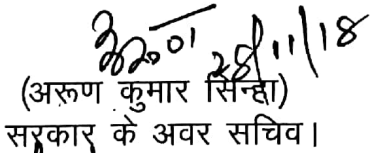 ह०01 28/11/18
(अरूण कुमार सिन्हा)
सरकार के अवर सचिव।